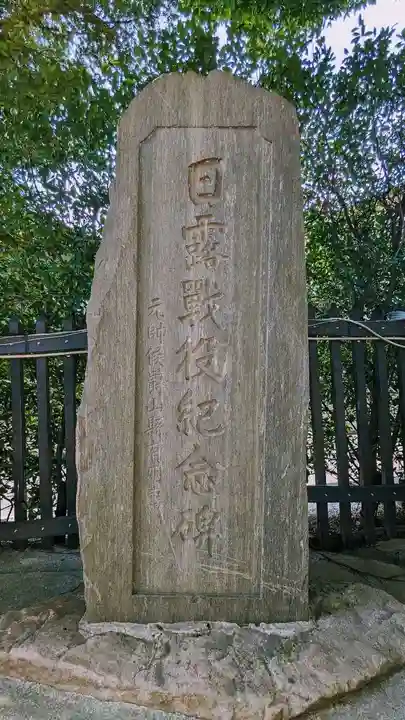 日露戰役紀念碑
元帥侯爵山縣有朋書